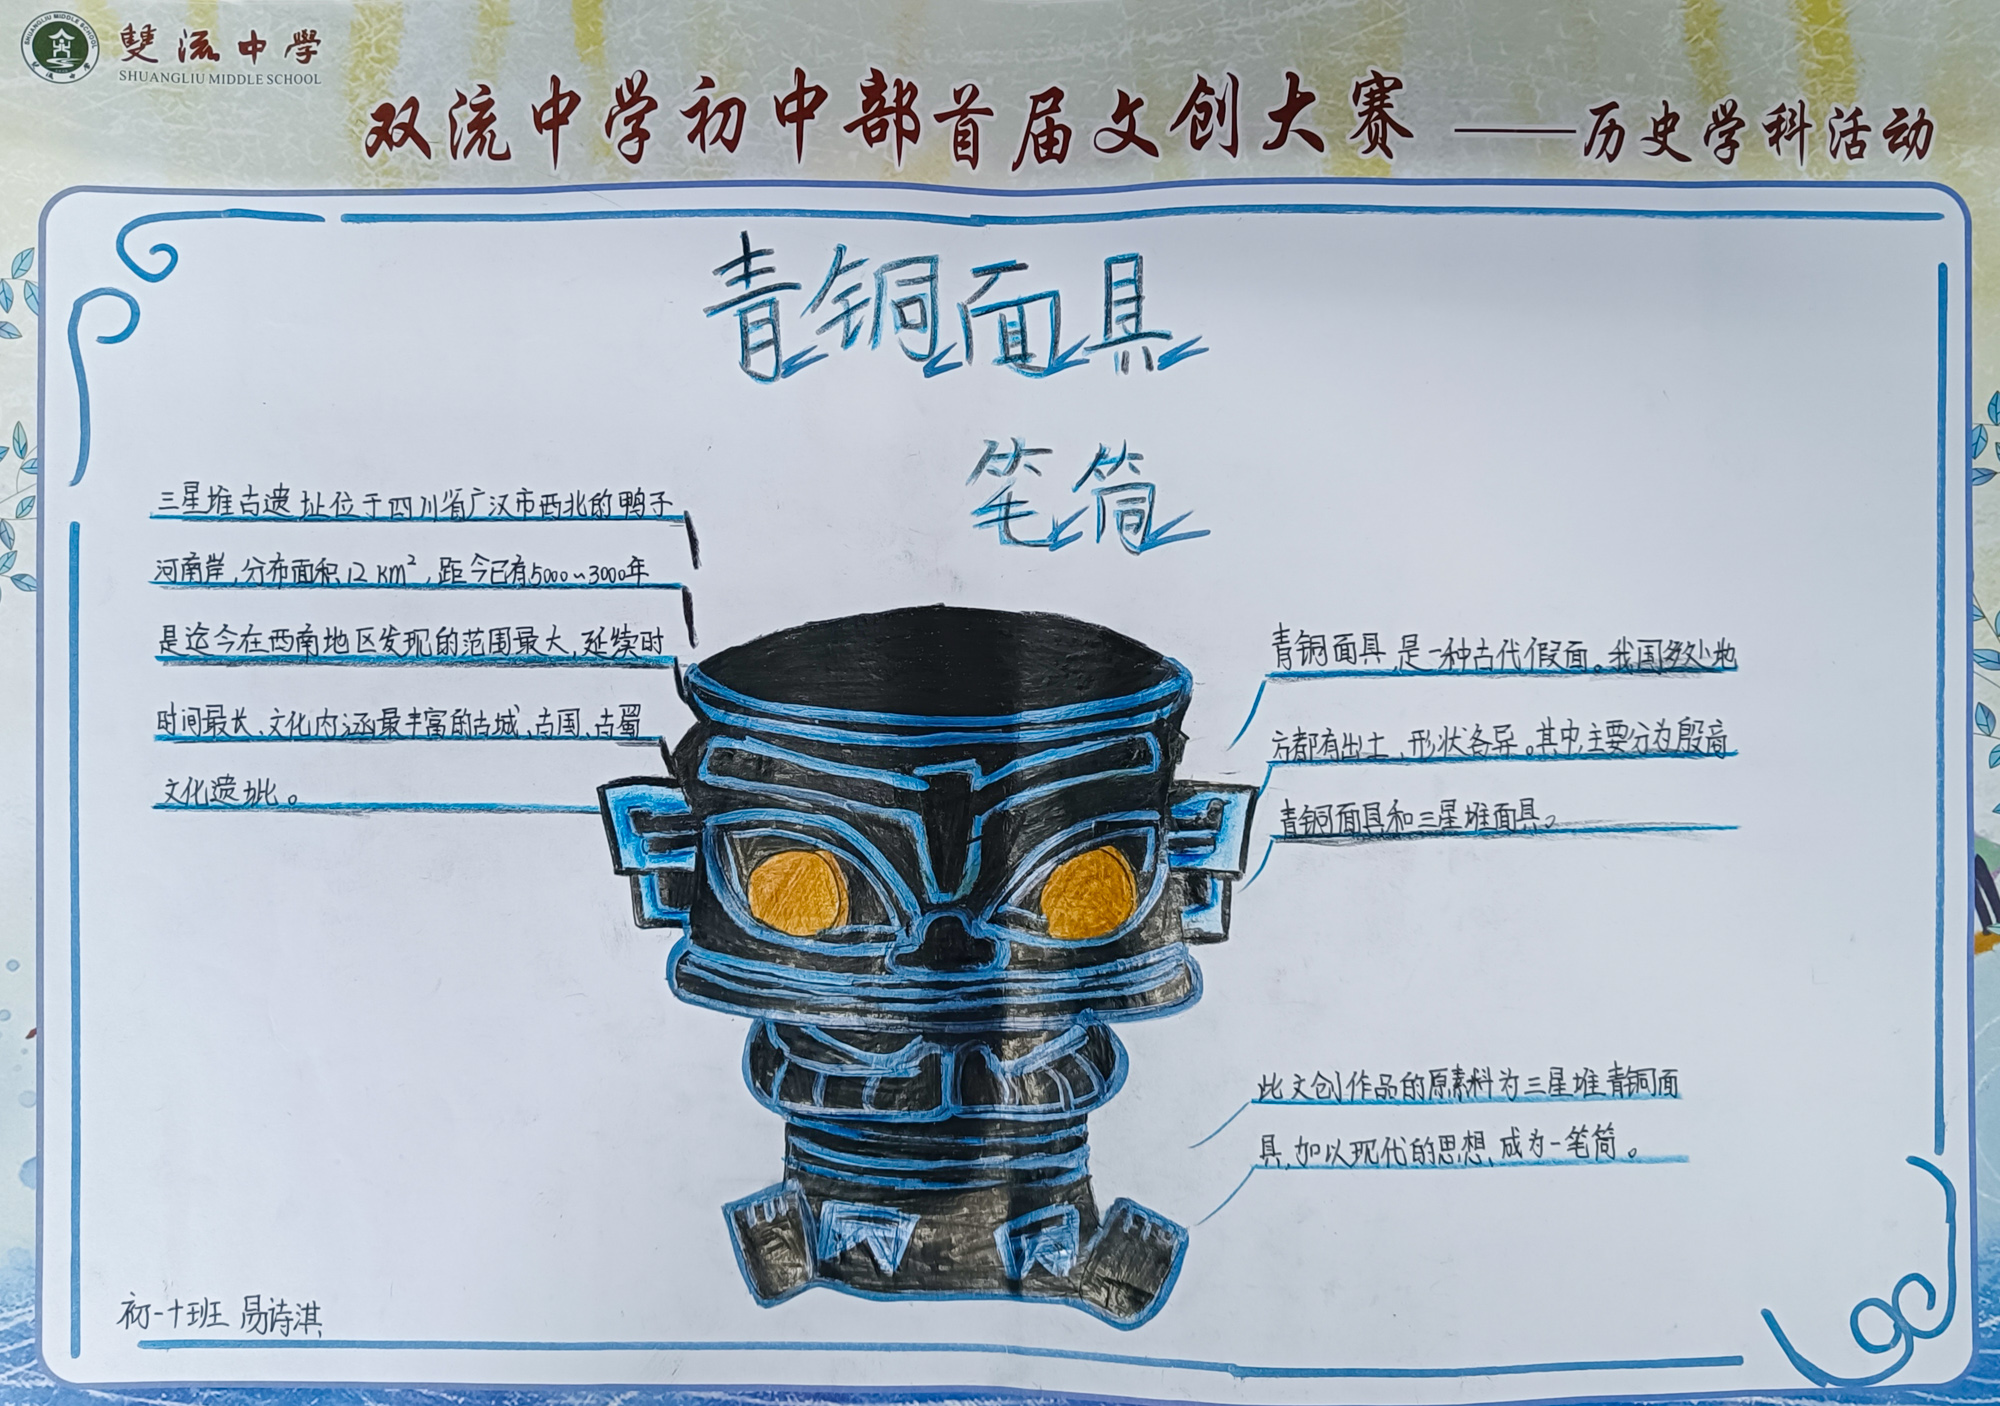 雙流中學
SHUANGLIU MIDDLE SCHOOL
双流中学初中部首届文创大赛 ——历史学科活动
青铜面具
笔筒
三星堆古遗址位于四川省广汉市西北的鸭子
河南岸,分布面积12 km²,距今已有5000~3000年
是迄今在西南地区发现的范围最大,延续时
时间最长、文化内涵最丰富的古城、古国、古蜀
文化遗址。
青铜面具,是一种古代假面。我国多处地
方都有出土、形状各异。其中主要分为殷商
青铜面具和三星堆面具。
此文创作品的原素料为三星堆青铜面
具,加以现代的思想,成为一笔筒。
初一十班 易诗淇